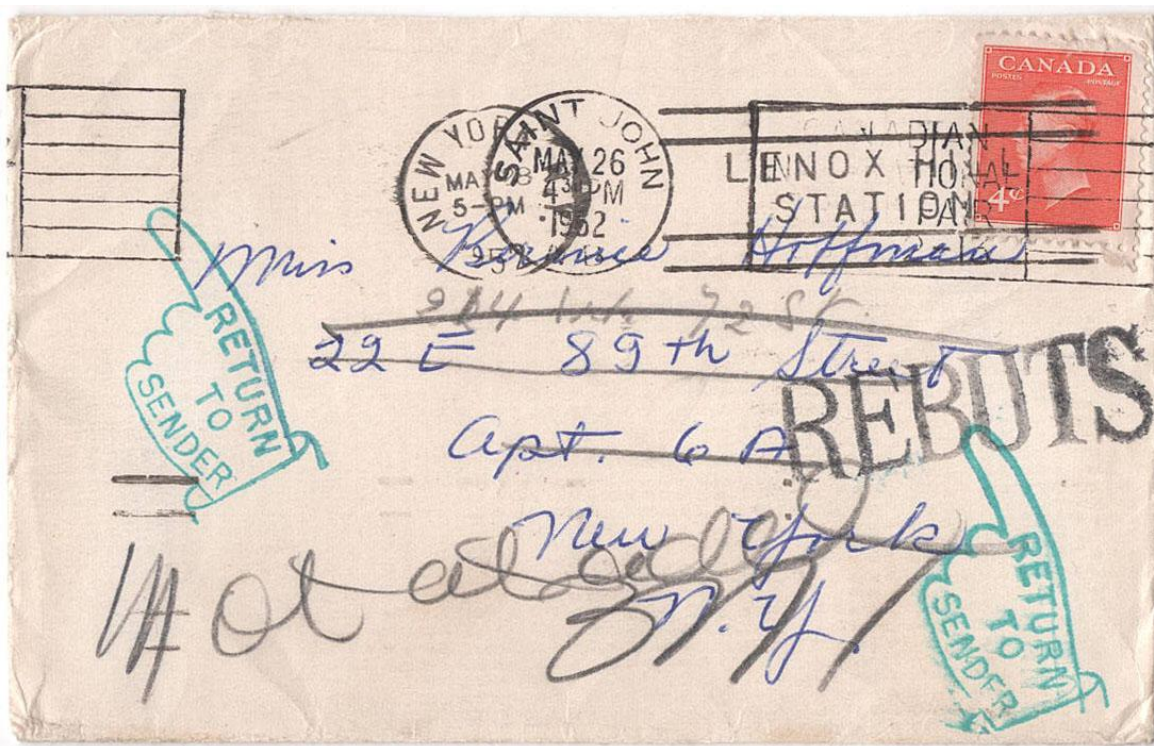 CANADA
POSTES POSTAGE
4¢
NEW YORK
MAY 28
5-PM
195
SAINT JOHN
MAY 26
4 PM
1952
CANADIAN
NATIONAL
FAIR
LENOX HILL
STATION
Miss Hoffman
72 St.
22 E 89th Street
Apt. 6 A
New York
N.Y.
REBUTS
RETURN
TO
SENDER
RETURN
TO
SENDER
Not at add